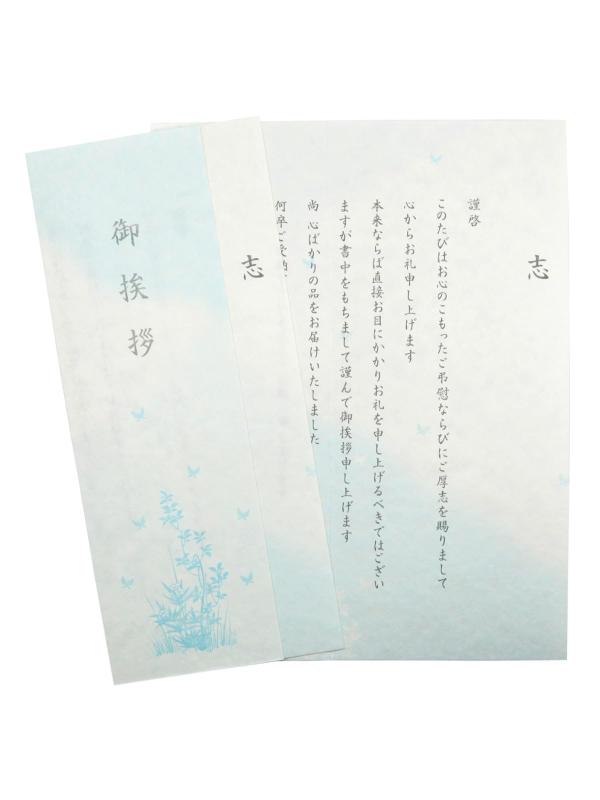 御挨拶
志
志
謹啓
このたびはお心のこもったご弔慰ならびにご厚志を賜りまして
心からお礼申し上げます
本来ならば直接お目にかかりお礼を申し上げるべきではござい
ますが書中をもちまして謹んで御挨拶申し上げます
尚 心ばかりの品をお届けいたしました
何卒ご受納